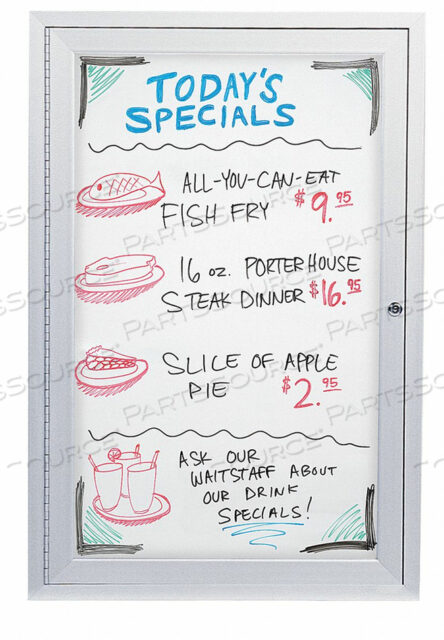 TODAY'S
SPECIALS
ALL-YOU-CAN-EAT
FISH FRY $9.95
16 oz. PORTERHOUSE
STEAK DINNER $16.95
SLICE OF APPLE
PIE $2.95
ASK OUR
WAITSTAFF ABOUT
OUR DRINK
SPECIALS!
PARTSSOURCE